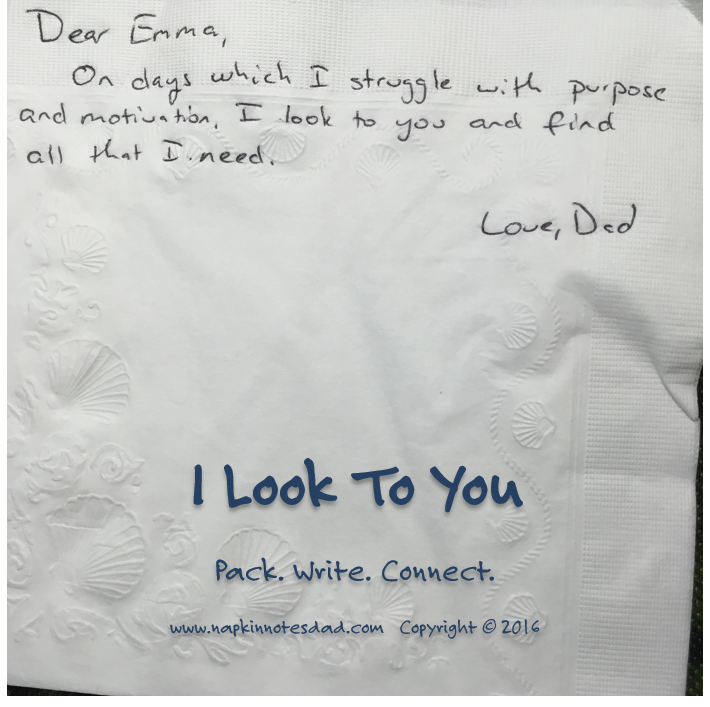 Dear Emma,
On days which I struggle with purpose
and motivation, I look to you and find
all that I need.
Love, Dad
I Look To You
Pack. Write. Connect.
www.napkinnotesdad.com Copyright © 2016